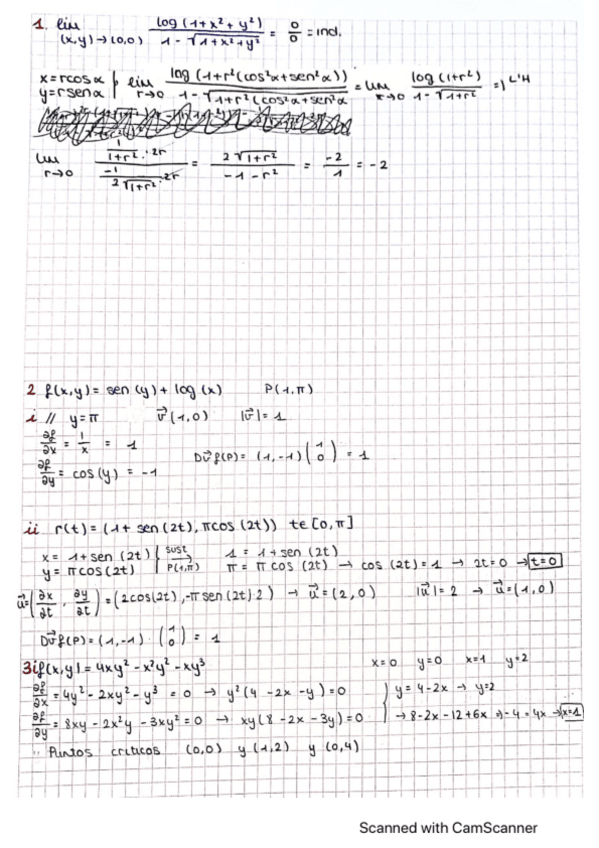 1. lim (x,y)→(0,0) log (1+x²+y²) / 1-√1+x²+y² = 0/0 = ind.
x=rcosα
y=rsenα | lim r→0 log (1+r²(cos²α+sen²α)) / 1-√1+r²(cos²α+sen²α = lim r→0 log (1+r²) / 1-√1+r² = L'H
lim r→0 1/1+r² · 2r / -1/2√1+r² · 2r = 2√1+r² / -1-r² = -2/1 = -2
2 f(x,y) = sen (y) + log (x) P(1,π)
i // y=π v⃗(1,0) |v⃗|=1
∂f/∂x = 1/x = 1
∂f/∂y = cos(y) = -1 Dv⃗f(P) = (1,-1) (1 0) = 1
ii r(t) = (1+ sen (2t), πcos (2t)) t∈[0,π]
x= 1+sen (2t) | sust 1 = 1+sen (2t)
y= πcos(2t) | P(1,π) → π = π cos (2t) → cos (2t)=1 → 2t=0 → t=0
u⃗=(∂x/∂t, ∂y/∂t) = (2cos(2t), -π sen(2t)·2) → u⃗=(2,0) |u⃗|=2 → u⃗=(1,0)
Dv⃗f(P) = (1,-1) · (1 0) = 1
3i f(x,y) = 4xy² - x²y² - xy³ x=0 y=0 x=1 y=2
∂f/∂x = 4y² - 2xy² - y³ = 0 → y²(4-2x-y)=0 | y=4-2x → y=2
∂f/∂y = 8xy - 2x²y - 3xy² = 0 → xy(8-2x-3y)=0 | → 8-2x-12+6x → -4=4x → x=1
Puntos críticos (0,0) y (1,2) y (0,4)
Scanned with CamScanner